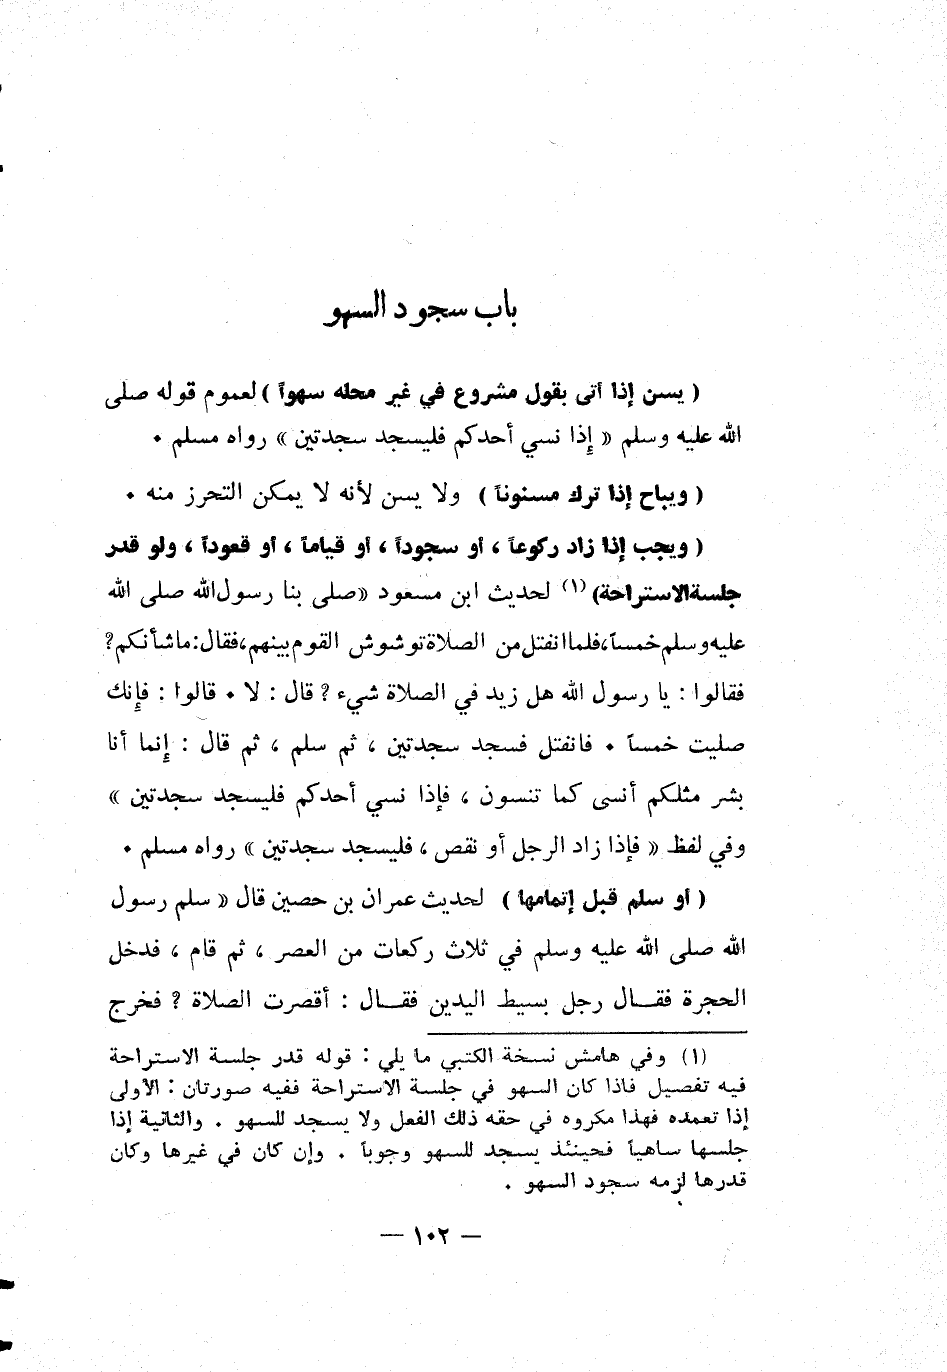 باب سجود السهو
( يسن إذا أتى بقول مشروع في غير محله سهواً ) لعموم قوله صلى
الله عليه وسلم « إذا نسي أحدكم فليسجد سجدتين » رواه مسلم ٠
( ويباح إذا ترك مسنوناً ) ولا يسن لأنه لا يمكن التحرز منه ٠
( ويجب إذا زاد ركوعاً ، أو سجوداً ، أو قياماً ، أو قعوداً ، ولو قدر
جلسة الاستراحة) (١) لحديث ابن مسعود «صلى بنا رسول الله صلى الله
عليه وسلم خمساً، فلما انفتل من الصلاة توشوش القوم بينهم، فقال: ما شأنكم؟
فقالوا : يا رسول الله هل زيد في الصلاة شيء ؟ قال : لا ٠ قالوا : فإنك
صليت خمساً ٠ فانفتل فسجد سجدتين ، ثم سلم ، ثم قال : إنما أنا
بشر مثلكم أنسى كما تنسون ، فإذا نسي أحدكم فليسجد سجدتين »
وفي لفظ « فإذا زاد الرجل أو نقص ، فليسجد سجدتين » رواه مسلم ٠
( أو سلم قبل إتمامها ) لحديث عمران بن حصين قال « سلم رسول
الله صلى الله عليه وسلم في ثلاث ركعات من العصر ، ثم قام ، فدخل
الحجرة فقــال رجل بسيط اليدين فقــال : أقصرت الصلاة ؟ فخرج
(١) وفي هامش نسخة الكتبي ما يلي : قوله قدر جلسة الاستراحة
فيه تفصيل فاذا كان السهو في جلسة الاستراحة ففيه صورتان : الأولى
إذا تعمده فهذا مكروه في حقه ذلك الفعل ولا يسجد للسهو . والثانية إذا
جلسها ساهياً فحينئذ يسجد للسهو وجوباً . وإن كان في غيرها وكان
قدرها لزمه سجود السهو .
— ١٠٢ —